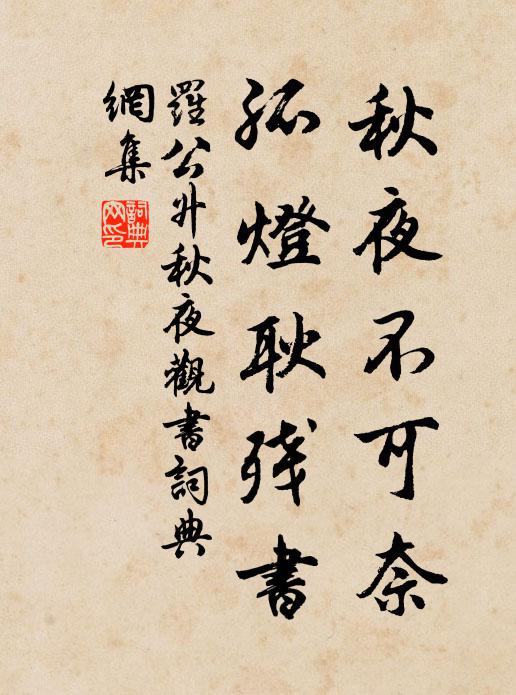 秋夜不可奈
孤燈耿残書
羅公升秋夜觀書詞典
網集
詞典
网印